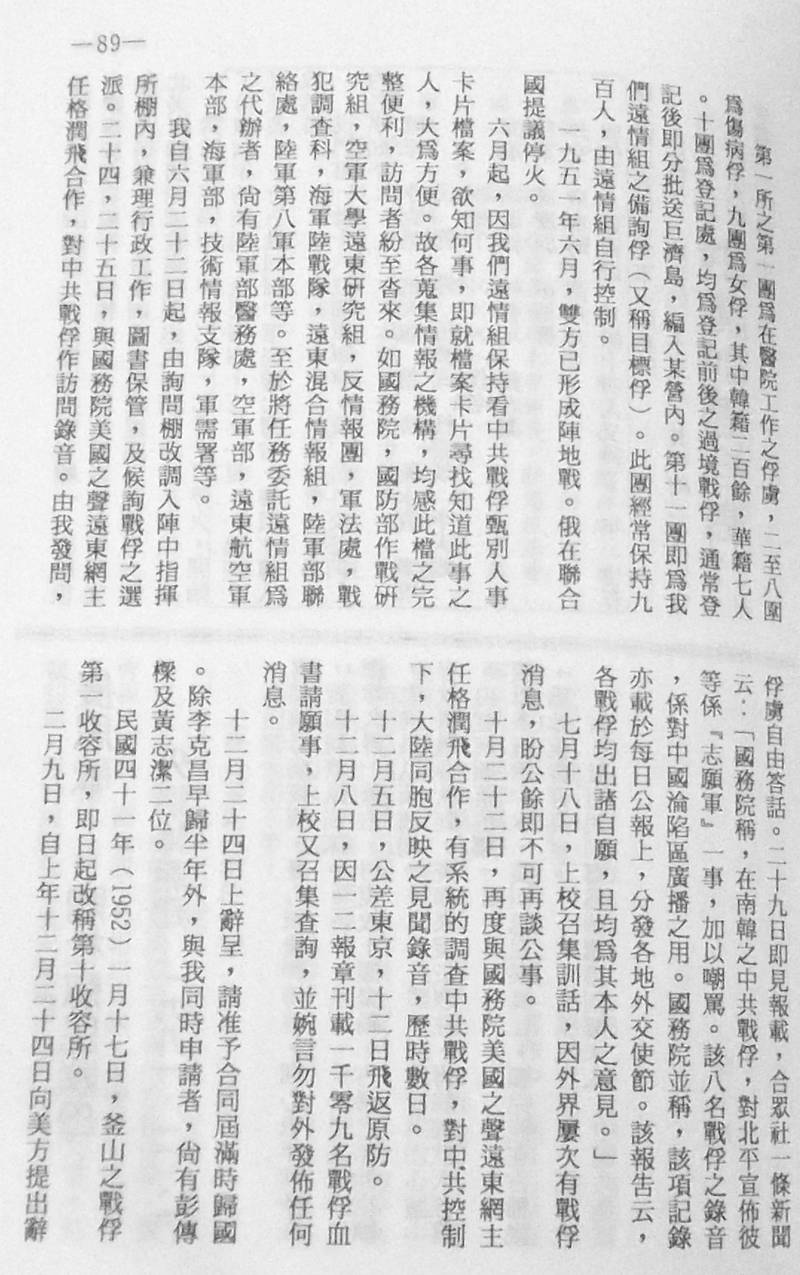 —89—
第一所之第一團爲在醫院工作之俘虜，二至八團
爲傷病俘，九團爲女俘，其中韓籍二百餘，華籍七人
。十團爲登記處，均爲登記前後之過境戰俘，通常登
記後即分批送巨濟島，編入某營內。第十一團即爲我
們遠情組之備詢俘（又稱目標俘）。此團經常保持九
百人，由遠情組自行控制。
一九五一年六月，雙方已形成陣地戰。俄在聯合
國提議停火。
六月起，因我們遠情組保持看中共戰俘甄別人事
卡片檔案，欲知何事，即就檔案卡片尋找知道此事之
人，大爲方便。故各蒐集情報之機構，均感此檔之完
整便利，訪問者紛至沓來。如國務院，國防部作戰研
究組，空軍大學遠東研究組，反情報團，軍法處，戰
犯調查科，海軍陸戰隊，遠東混合情報組，陸軍部聯
絡處，陸軍第八軍本部等。至於將任務委託遠情組爲
之代辦者，尙有陸軍部醫務處，空軍部，遠東航空軍
本部，海軍部，技術情報支隊，軍需署等。
我自六月二十二日起，由詢問棚改調入陣中指揮
所棚內，兼理行政工作，圖書保管，及候詢戰俘之選
派。二十四，二十五日，與國務院美國之聲遠東網主
任格潤飛合作，對中共戰俘作訪問錄音。由我發問，
俘虜自由答話。二十九日即見報載，合眾社一條新聞
云：「國務院稱，在南韓之中共戰俘，對北平宣佈彼
等係『志願軍』一事，加以嘲罵。該八名戰俘之錄音
，係對中國淪陷區廣播之用。國務院並稱，該項記錄
亦載於每日公報上，分發各地外交使節。該報告云，
各戰俘均出諸自願，且均爲其本人之意見。」
七月十八日，上校召集訓話，因外界屢次有戰俘
消息，盼公餘即不可再談公事。
十月二十二日，再度與國務院美國之聲遠東網主
任格潤飛合作，有系統的調查中共戰俘，對中共控制
下，大陸同胞反映之見聞錄音，歷時數日。
十二月五日，公差東京，十二日飛返原防。
十二月八日，因一二報章刊載一千零九名戰俘血
書請願事，上校又召集查詢，並婉言勿對外發佈任何
消息。
十二月二十四日上辭呈，請准予合同屆滿時歸國
。除李克昌早歸半年外，與我同時申請者，尙有彭傳
樑及黃志潔二位。
民國四十一年（1952）一月十七日，釜山之戰俘
第一收容所，即日起改稱第十收容所。
二月九日，自上年十二月二十四日向美方提出辭